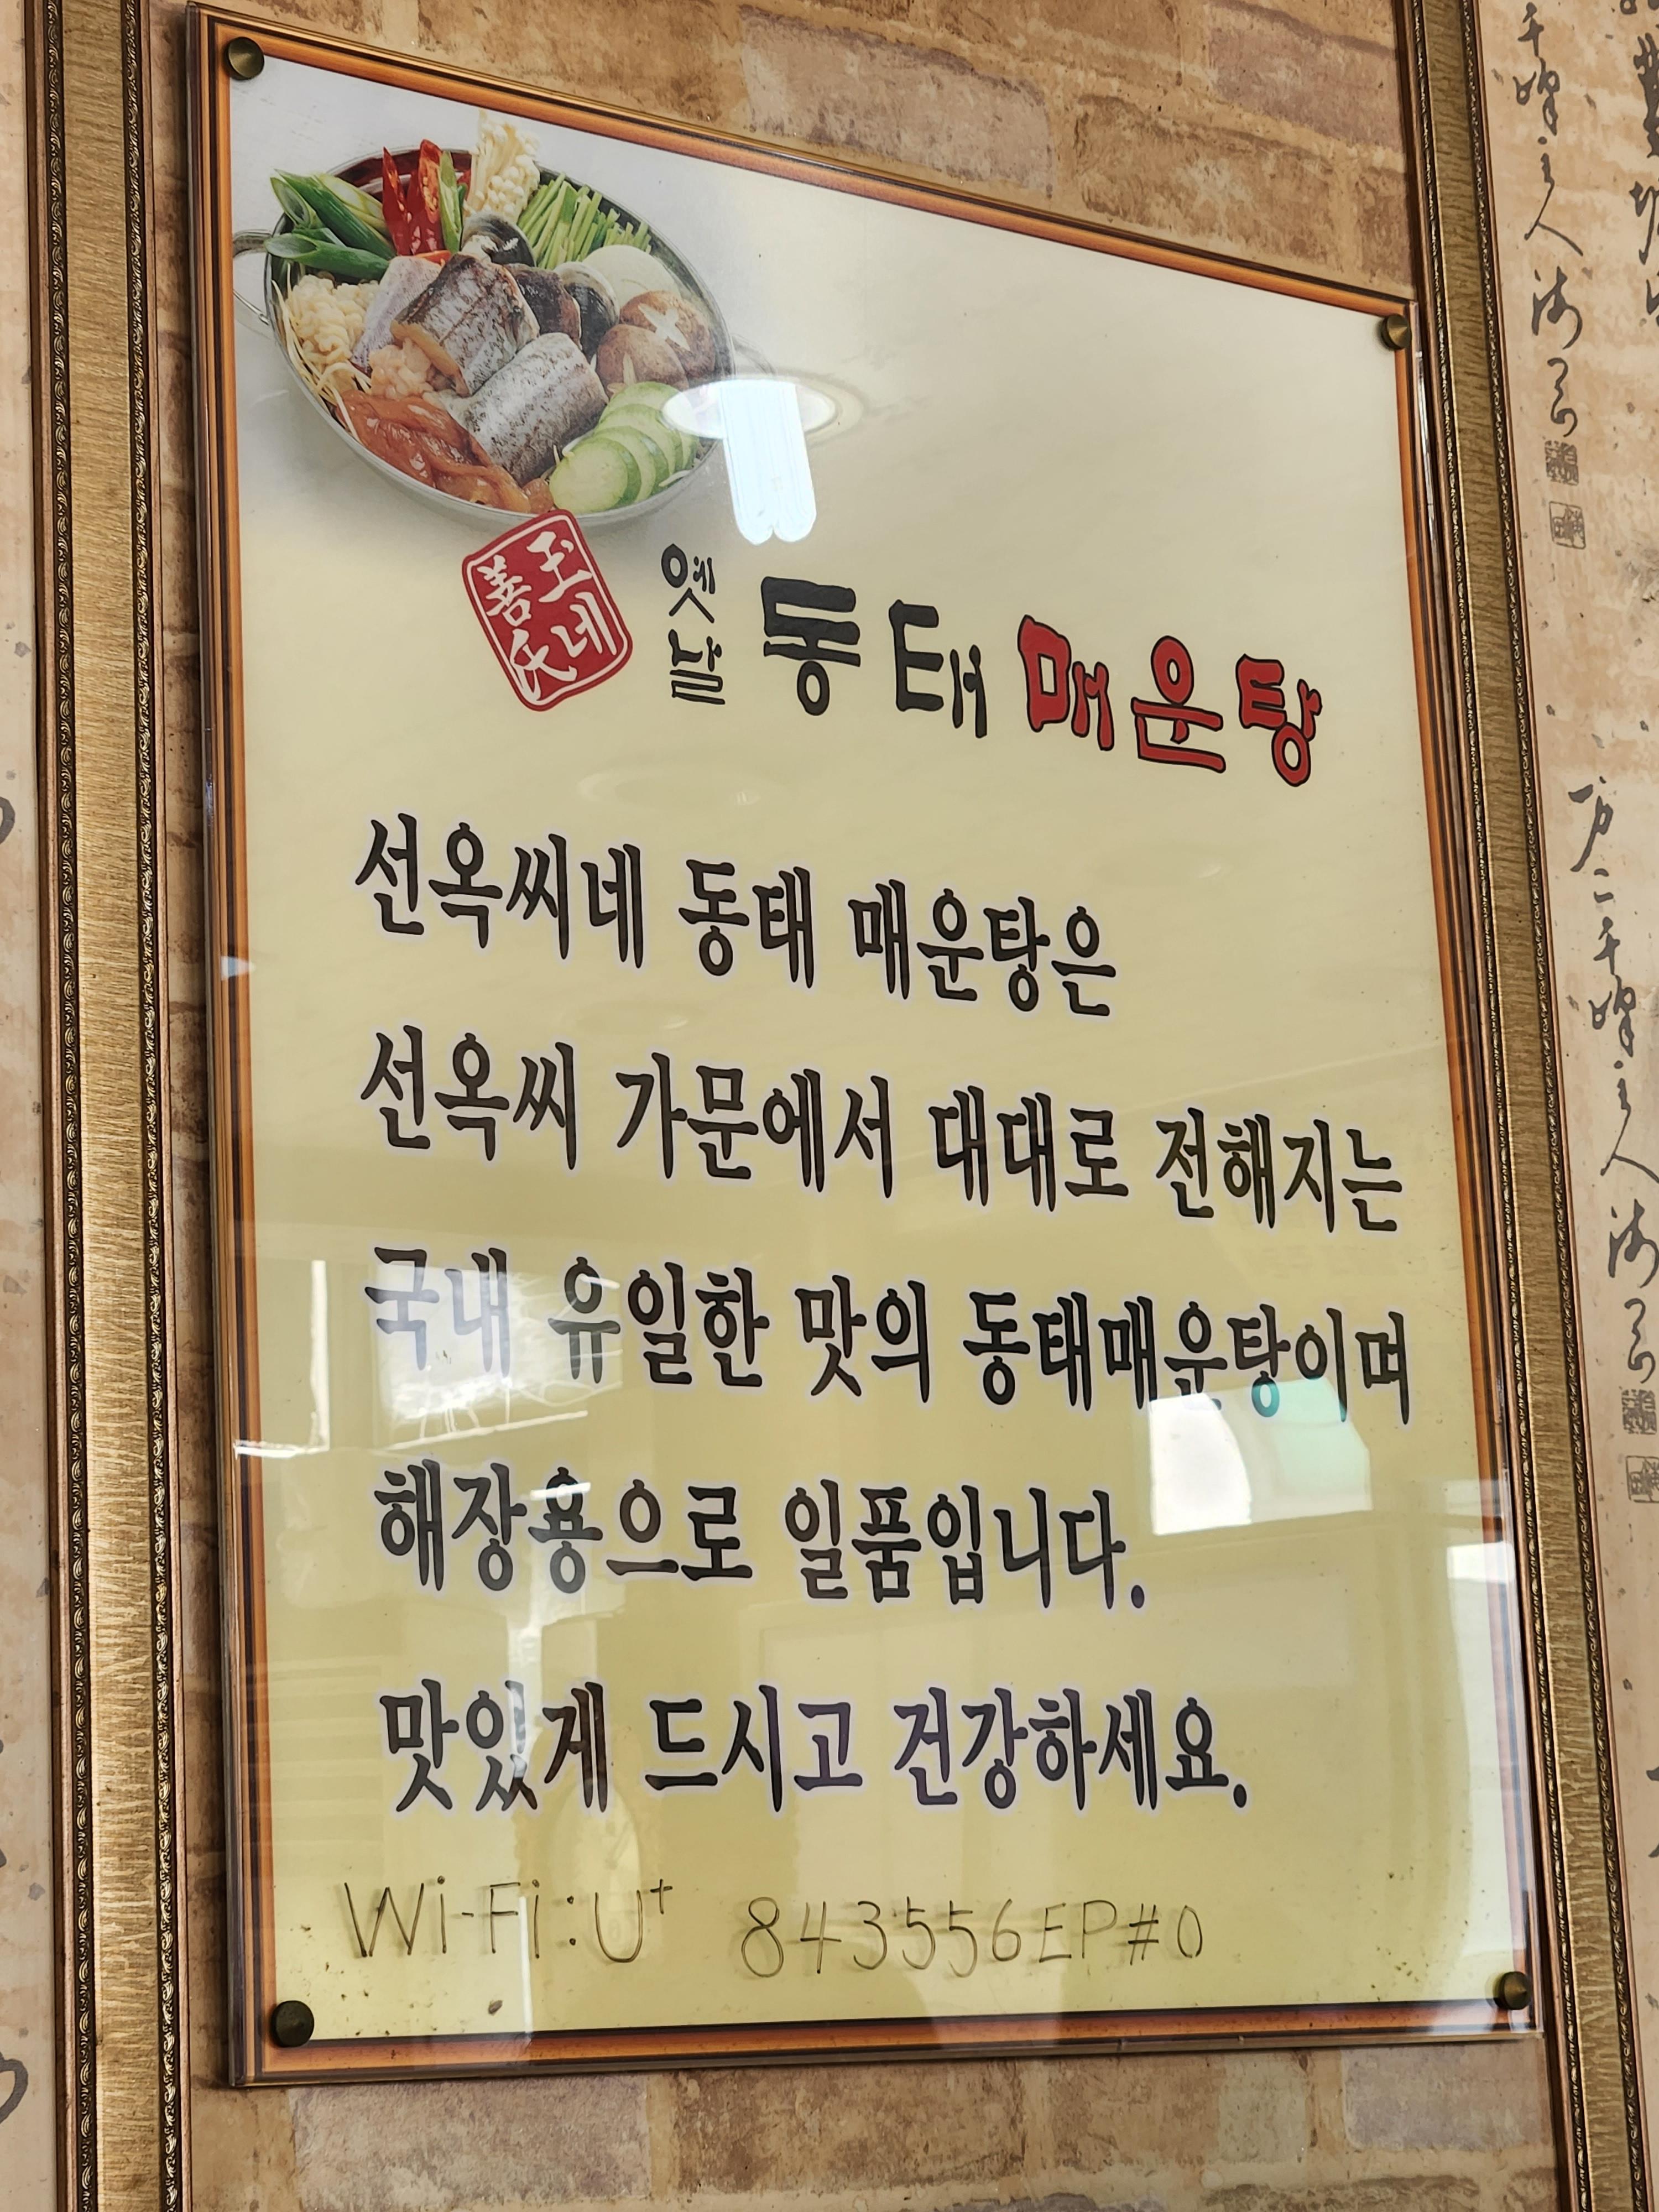 善玉氏네
옛날 동태 매운탕
선옥씨네 동태 매운탕은
선옥씨 가문에서 대대로 전해지는
국내 유일한 맛의 동태매운탕이며
해장용으로 일품입니다.
맛있게 드시고 건강하세요.
Wi-Fi:U+ 843556EP#0